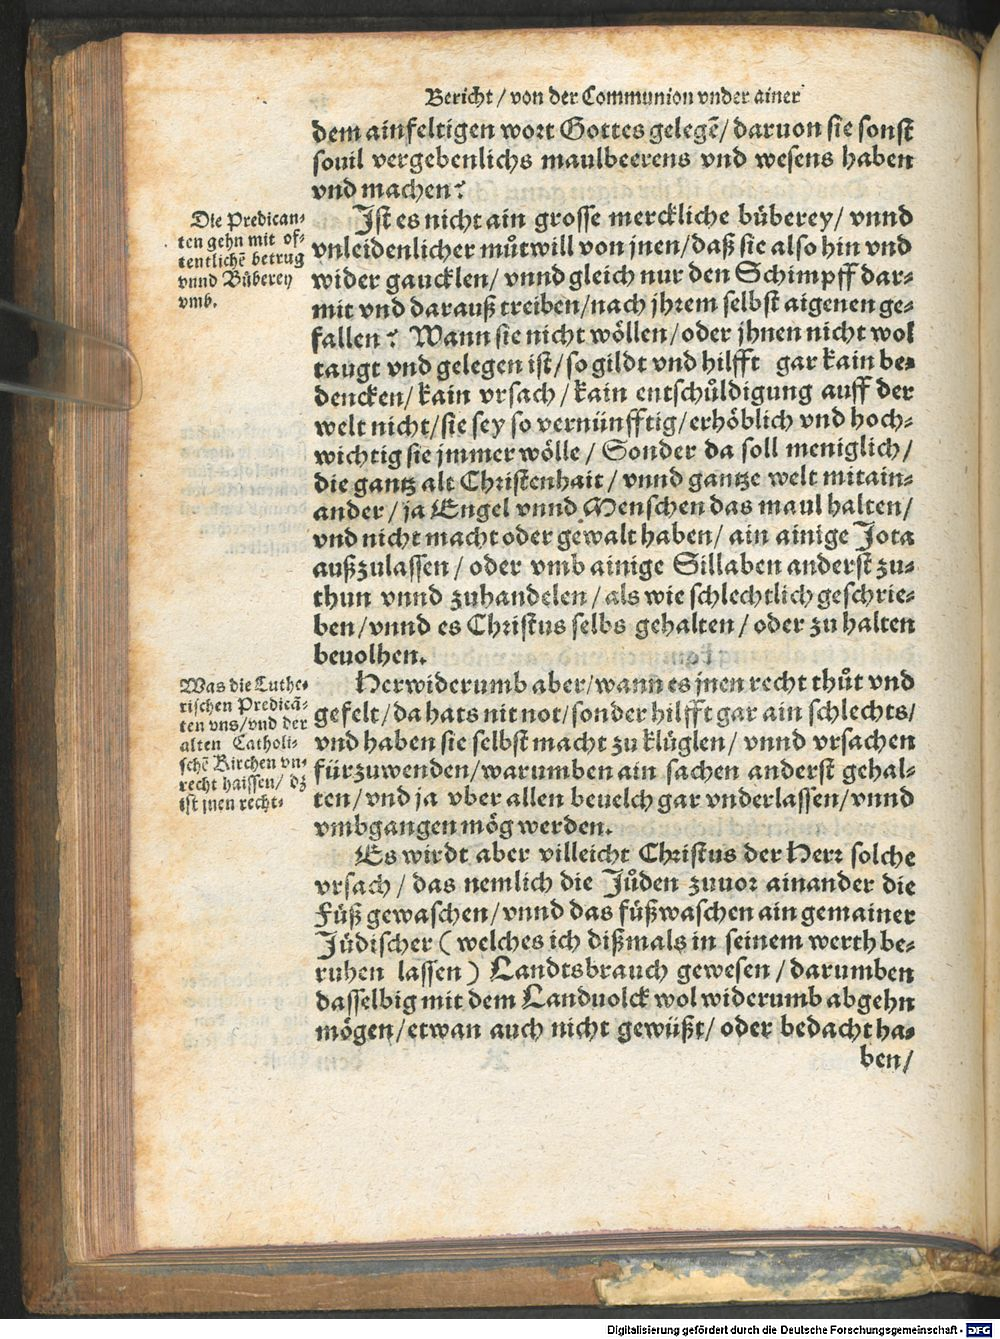 Bericht / von der Communion vnder ainer
dem ainfeltigen wort Gottes gelegē / daruon sie sonst
souil vergebenlichs maulbeerens vnd wesens haben
vnd machen?
Die Predican-
ten gehn mit of-
tentlichē betrug
vnnd Bůberey
vmb.
Jst es nicht ain grosse merckliche bůberey / vnnd
vnleidenlicher můtwill von jnen / daß sie also hin vnd
wider gaucklen / vnnd gleich nur den Schimpff dar-
mit vnd darauß treiben / nach jhrem selbst aigenen ge-
fallen? Wann sie nicht wöllen / oder jhnen nicht wol
taugt vnd gelegen ist / so gildt vnd hilfft gar kain be-
dencken / kain vrsach / kain entschůldigung auff der
welt nicht / sie sey so vernünfftig / erhöblich vnd hoch-
wichtig sie jmmer wölle / Sonder da soll meniglich /
die gantz alt Christenhait / vnnd gantze welt mitain-
ander / ja Engel vnnd Menschen das maul halten /
vnd nicht macht oder gewalt haben / ain ainige Jota
außzulassen / oder vmb ainige Sillaben anderst zu-
thun vnnd zuhandelen / als wie schlechtlich geschrie-
ben / vnnd es Christus selbs gehalten / oder zu halten
beuolhen.
Was die Luthe-
rischen Predicā-
ten vns / vnd der
alten Catholi-
schē Kirchen vn-
recht haissen / dz
ist jnen recht.
Herwiderumb aber / wann es jnen recht thůt vnd
gefelt / da hats nit not / sonder hilfft gar ain schlechts /
vnd haben sie selbst macht zu klůglen / vnnd vrsachen
fürzuwenden / warumben ain sachen anderst gehal-
ten / vnd ja vber allen beuelch gar vnderlassen / vnnd
vmbgangen mög werden.
Es wirdt aber villeicht Christus der Herr solche
vrsach / das nemlich die Jůden zuuor ainander die
Fůß gewaschen / vnnd das fůßwaschen ain gemainer
Jůdischer ( welches ich dißmals in seinem werth be-
ruhen lassen ) Landtsbrauch gewesen / darumben
dasselbig mit dem Landuolck wol widerumb abgehn
mögen / etwan auch nicht gewüßt / oder bedacht ha-
ben /
Digitalisierung gefördert durch die Deutsche Forschungsgemeinschaft - DFG